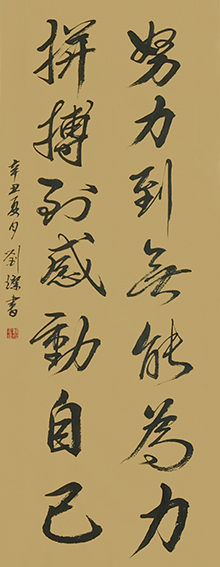 努力到無能為力
拼搏到感動自己
辛丑夏月劉瀿書